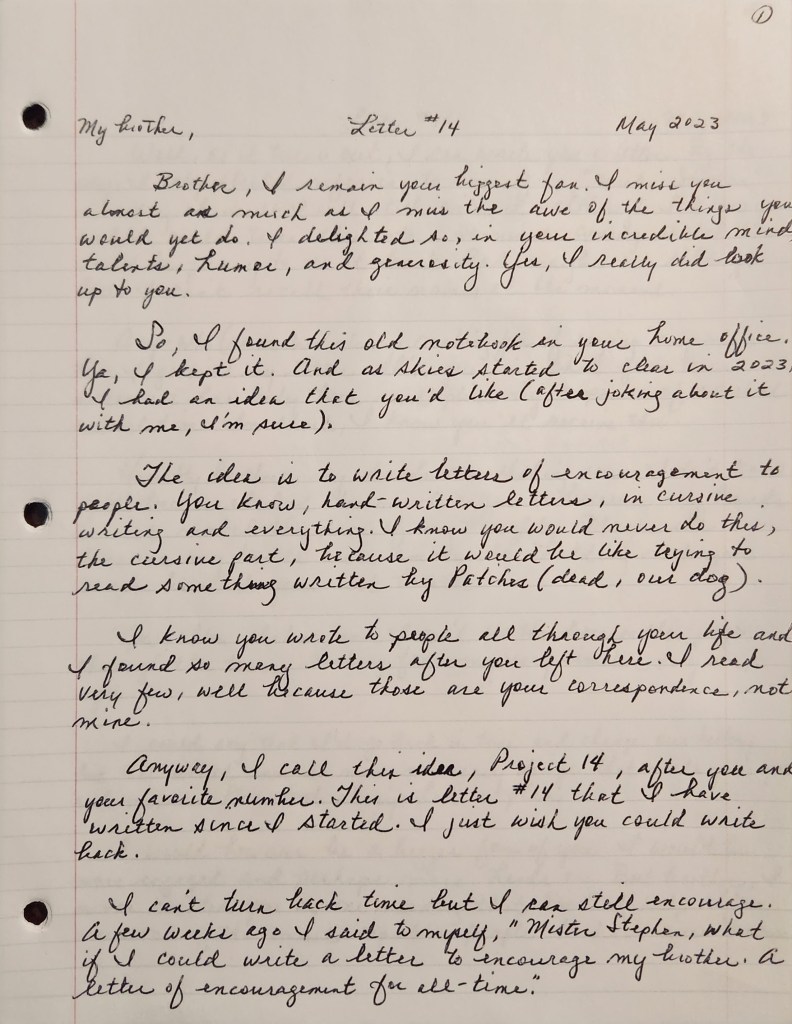 ①
My brother, Letter #14 May 2023
Brother, I remain your biggest fan. I miss you
almost as much as I miss the awe of the things you
would yet do. I delighted so, in your incredible mind,
talents, humor, and generosity. Yes, I really did look
up to you.
So, I found this old notebook in your home office.
Ya, I kept it. And as skies started to clear in 2023,
I had an idea that you'd like (after joking about it
with me, I'm sure).
The idea is to write letters of encouragement to
people. You know, hand-written letters, in cursive
writing and everything. I know you would never do this,
the cursive part, because it would be like trying to
read something written by Patches (dead, our dog).
I know you wrote to people all through your life and
I found so many letters after you left here. I read
very few, well because those are your correspondence, not
mine.
Anyway, I call this idea, Project 14, after you and
your favorite number. This is letter #14 that I have
written since I started. I just wish you could write
back.
I can't turn back time but I can still encourage.
A few weeks ago I said to myself, "Mister Stephen, what
if I could write a letter to encourage my brother. A
letter of encouragement for all-time."